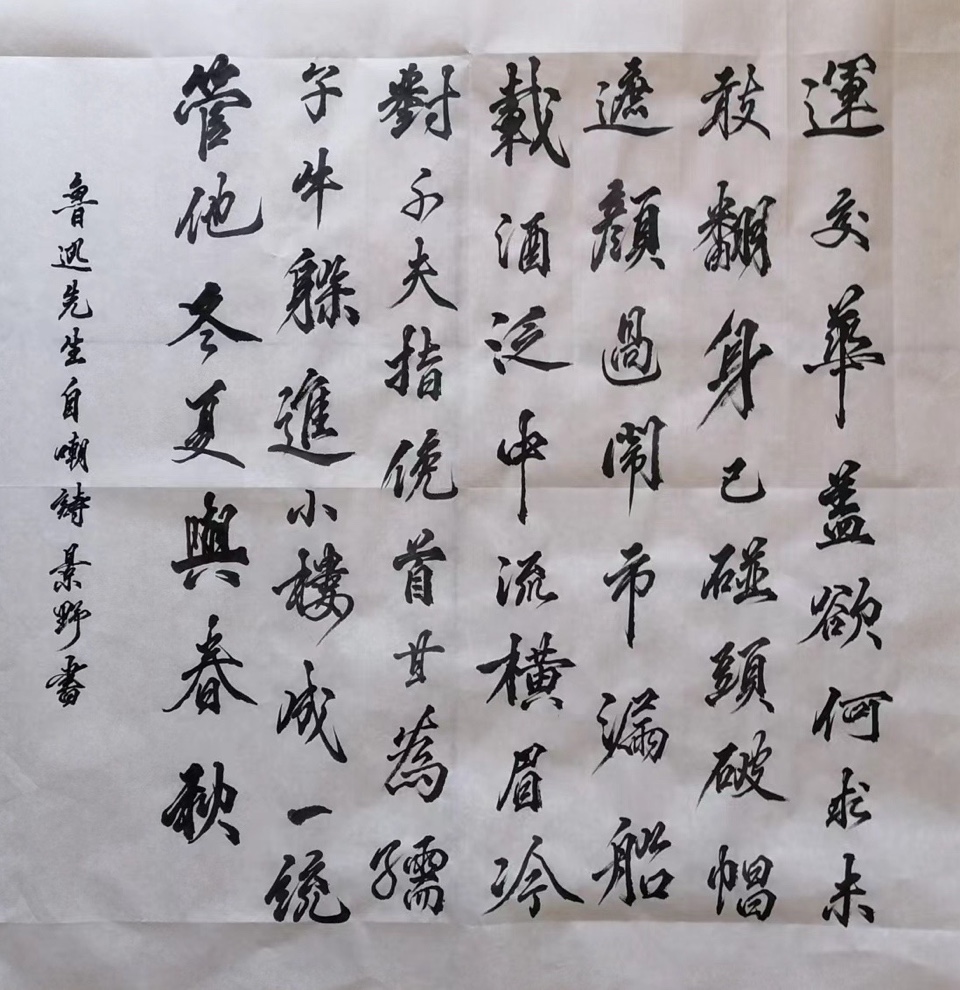 運交華蓋欲何求未
敢翻身已碰頭破帽
遮顏過鬧市漏船
載酒泛中流橫眉冷
對千夫指俛首甘為孺
子牛躲進小樓成一統
管他冬夏與春秋
魯迅先生自嘲詩景野書